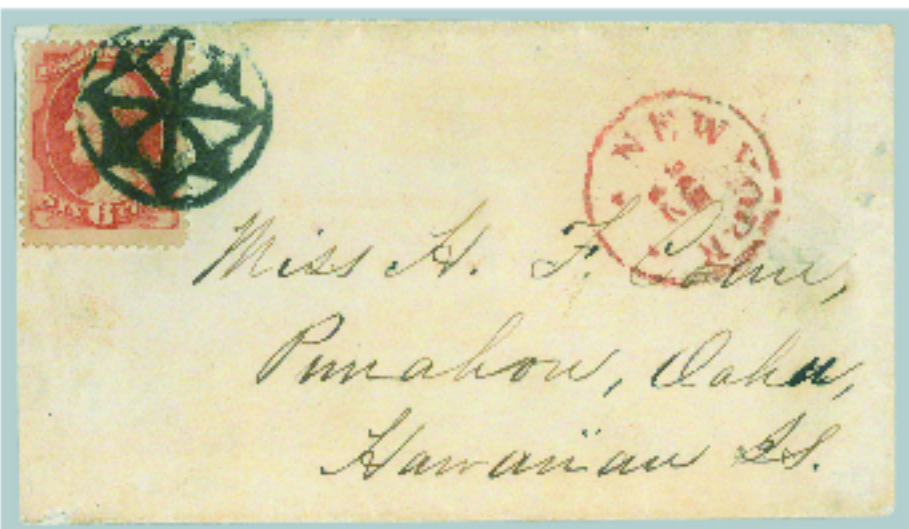 NEW YORK
Miss H. F. Coan,
Punahou, Oahu,
Hawaiian Is.